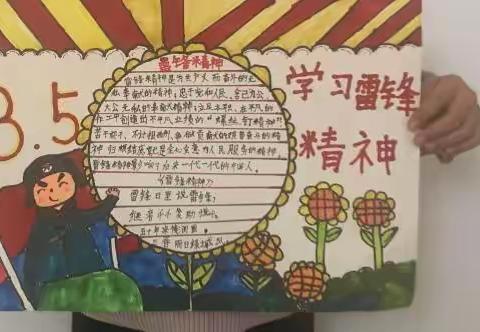 3.5
学习雷锋
精神
雷锋精神
雷锋精神是为共产义而奋斗的无
私奉献的精神；忠于党和人民、舍己为公、
大公无私的奉献精神；立足本职、在平凡的
工作中创造出不平凡业绩的“螺丝钉精神”
苦干实干、不计报酬、争做贡献的艰苦奋斗的精
神 归根结底就是全心全意为人民服务的精神。
雷锋精神影响了后来一代一代的中国人。
《雷锋精神》
雷锋日里说雷锋，
继者
五十年来
明日